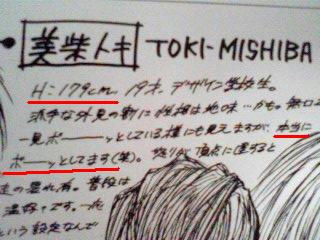 美柴トキ TOKI-MISHIBA
H:179cm. 19才、デザイン学校生。
派手な外見の割に性格は地味…かも。無口で
一見ボーーッとしている様にも見えますが、本当に
ボーーッとしてます(笑)。怒りが頂点に達すると
の暴れ方。普段は
温厚です。一応
という設定なんで